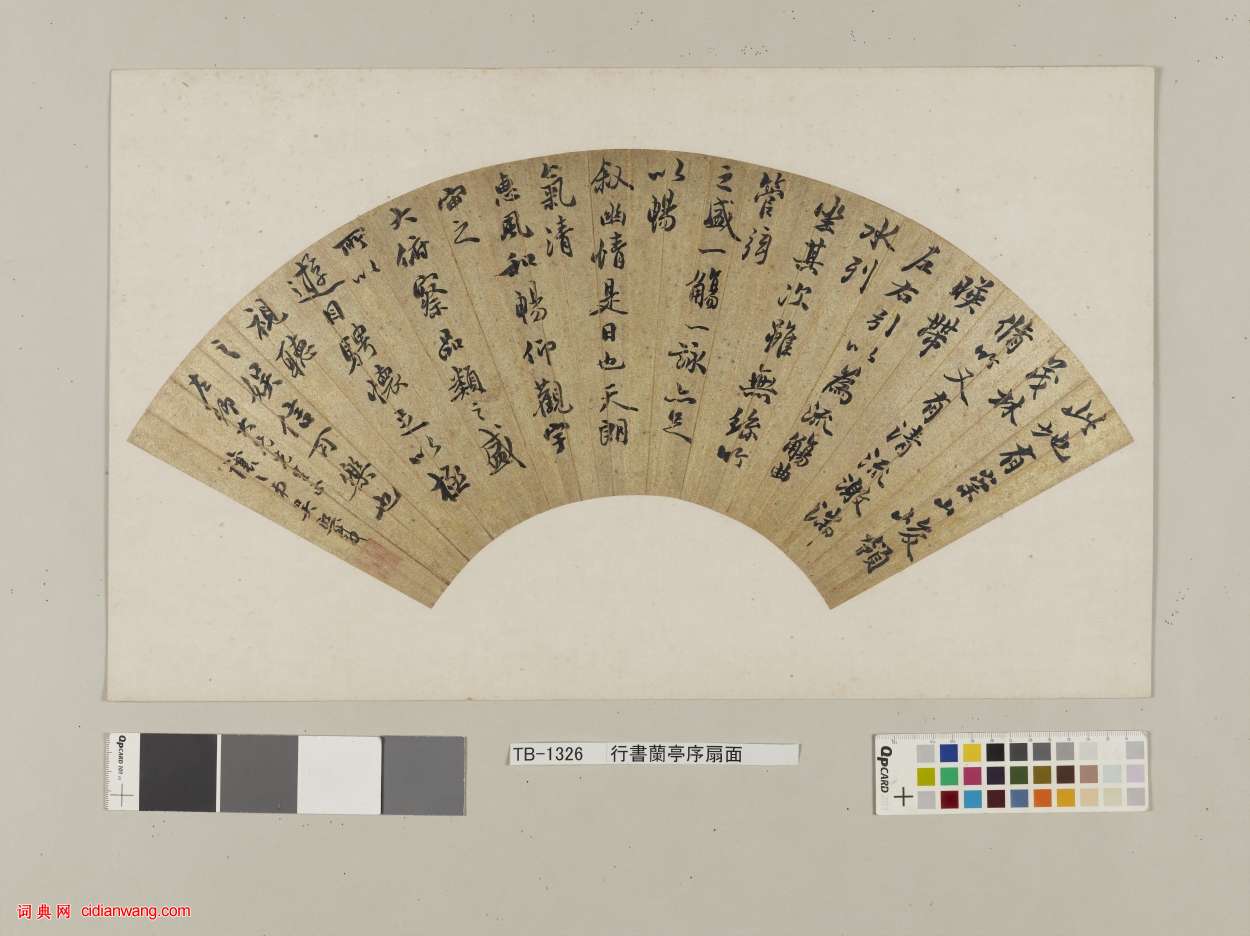 此地有崇山峻領
茂林
脩竹又有清流激湍
暎帶
左右引以為流觴曲
水列
坐其次雖無絲竹
管弦
之盛一觴一詠亦足
以暢
叙幽情是日也天朗
氣清
惠風和暢仰觀宇
宙之
大俯察品類之盛
所以
遊目騁懷足以極
視聽
之娛信可樂也
TB-1326 行書蘭亭序扇面
QPCARD 101
QPCARD
词典网 cidianwang.com